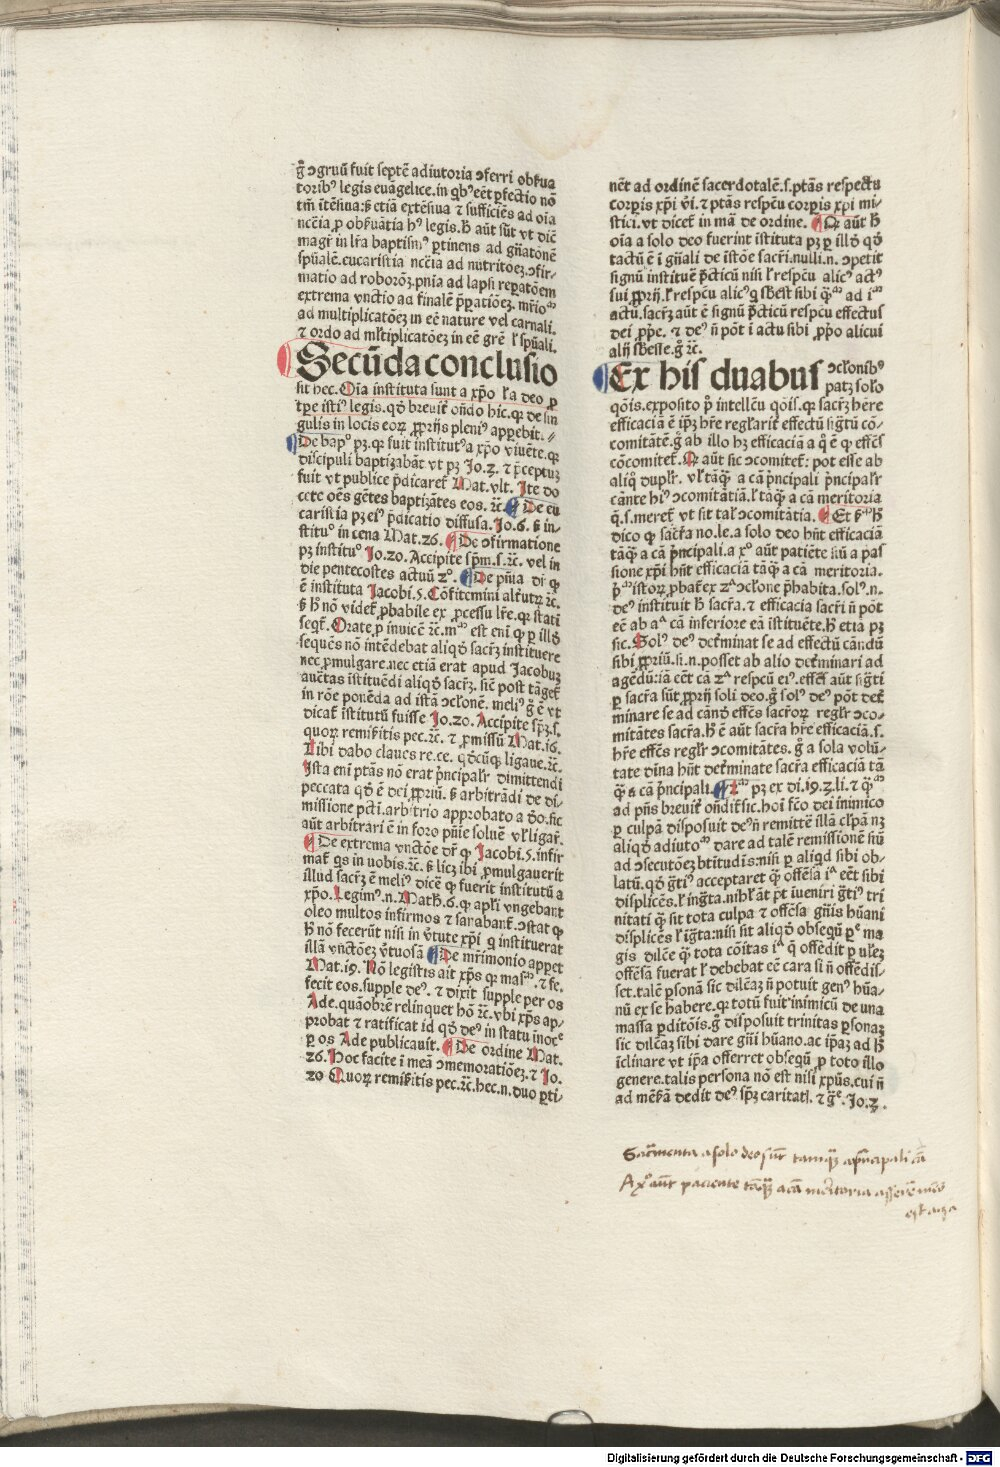 g̃ ↄgruũ fuit septẽ adiutoria ↄferri obſ̃ua
toribꝰ legis euãgelice.in qͥbꝰ eẽt ꝑfectio nõ
tm̃ ĩtẽsiua:ß etiã extẽsiua ⁊ sufficiẽs ad oĩa
ncc̃ia ꝓ obſ̃uãtia hꝰ legis.ħ aũt sũt vt dic̃
magr̃ in lr̃a baptismꝰ ꝑtinens ad gñatonẽ
spũalẽ.eucaristia ncc̃ia ad nutritõeꝫ.ↄfir-
matio ad roborõꝫ.pnĩa ad lapsi reꝑatõem
extrema vnctio ad finalẽ p̃ꝑatiõeꝫ. mr̃ioᵐ
ad multiplicatõeꝫ in eẽ nature vel carnali.
⁊ ordo ad ml̃tiplicatõeꝫ in eẽ gr̃e l̃ spũali.
Secũda conclusio
sit hec.Oĩa instituta sunt a xp̃o l̃a deo ꝓ
tꝑe istiꝰ legis.qð breuit̃ oñdo hic.qꝛ de sin
gulis in locis eoꝝ ꝓprijs pleniꝰ apꝑebit.
De bapᵒ pꝫ.qꝛ fuit institutꝰa xp̃o viuẽte.qꝛ
discipuli baptizabãt vt pꝫ Jo.3. ⁊ p̃ceptuꝫ
fuit vt publice p̃dicaret̃ Mat.vlt. Ite do
cete oẽs gẽtes baptizãtes eos. ⁊c̃. De eu
caristia pꝫ eiꝰ p̃dicatio diffusa.Jo.6. ß in-
stituᵒ in cena Mat.26. De ↄfirmatione
pꝫ instituᵒ Jo.20.Accipite sp̃m.s.⁊c̃. vel in
die pentecostes actuũ 2ᵒ. De pñia dr̃ qꝙ
ẽ instituta Jacobi.5.Cõfitemini alt̃utꝝ ⁊c̃.
ß ħ nõ videt̃ ꝓbabile ex ꝓcessu lr̃e.qꝛ statĩ
seqt̃.Orate ꝓ inuicẽ ⁊c̃.mᵒ est eni ꝙ ꝑ illð
sequẽs nõ intẽdebat aliqð sacr̃ꝫ instituere
nec ꝓmulgare.nec etiã erat apud Jacobuꝫ
auc̃tas istituẽdi aliqð sacr̃ꝫ. sic̃ post tãget̃
in rõe ponẽda ad istã ↄcl̃onẽ. meliꝰ g̃ ẽ vt
dicat̃ ĩstitutũ fuisse Jo.20.Accipite sp̃ꝫ.s.
quoꝝ remisſ̃itis pec.⁊c̃. ⁊ ꝓmissũ Mat.16.
Tibi dabo claues re.ce. qðcũqꝫ ligaue.⁊c̃.
Ista eni ptãs nõ erat p̃ncipalr̃ dimittendi
peccata qð ẽ dei ꝓpriũ. ß arbitrãdi de di-
missione pcti.arbitrio approbato a do.sic
aũt arbitrari ẽ in foro pñie soluẽ vl̃ ligar̃.
De extrema vnctõe dr̃ ꝙ Jacobi.5.infir
mat̃ qs in uobis.⁊c̃. ß licꝫ ibi ꝓmulgauerit
illud sacr̃ꝫ ẽ meliꝰ dicẽ ꝙ fuerit institutũ a
xp̃o.Legimꝰ.n.Math.6.ꝙ apl̃i vngebant
oleo multos infirmos ⁊ sanabant̃.ↄstat ꝙ
ħ nõ fecerũt nisi in v̓tute xp̃i q instituerat
illã vnctõeꝫ v̓tuosã De mr̃imonio appet
Mat.19. Nõ legistis ait xp̃s qꝛ masᵐ.⁊ fe.
fecit eos.supple deꝰ. ⁊ dixit supple per os
Ade.quãobrẽ relinquet hõ ⁊c̃.vbi xp̃s ap-
probat ⁊ ratificat id qð deꝰ in statu ĩnocᵉ
ꝑ os Ade publicauit. De ordine Mat.
26.Hoc facite i meã ↄmemoratiõeꝫ.⁊ Jo.
20 Quoꝝ remisſ̃itis pec.⁊c̃.hec.n.duo ꝑti-
nẽt ad ordinẽ sacerdotalẽ.s.ptãs respectu
corꝑis xp̃i v̓i.⁊ ptãs respc̃u corꝑis xp̃i mi-
stici.vt dicet̃ in mã de ordine. Q aũt ħ
oĩa a solo deo fuerint ĩstituta pꝫ ꝑ illð qð
tactũ ẽ i gñali de ĩstõe sacr̃i.nulli.n. ↄpetit
signũ instituẽ p̃cticũ nisi l̃ respc̃u alicꝰ actꝰ
sui ꝓprij.l̃ respc̃u alicꝰ q sb̃est sibi
actũ.sacr̃ꝫ aũt ẽ signũ p̃cticũ respc̃u effectus
dei ꝓp̃e. ⁊ deꝰ ñ põt i actu sibi ꝓp̃o alicui
alij sb̃esse.g̃ ⁊c̃.
Ex his duabus ↄcl̃onibꝰ
patꝫ sol̃o
qõis.exposito pͥ intellc̃u qõis.ꝙ sacr̃ꝫ hẽre
efficaciã ẽ ip̃ꝫ hr̃e regl̃arit̃ effectũ sigt̃ũ cõ-
comitãtẽ.g̃ ab illo hꝫ efficaciã a q̃ ẽ ꝙ effc̃s
cõcomitet̃. Q aũt sic ↄcomitet̃: pot esse ab
aliq̃ duplr̃. vl̃ tãꝙ̃ a cã p̃ncipali p̃ncipalr̃
cãnte hiꝰ ↄcomitãtiã.l̃ tãꝙ̃ a cã meritoria
q̃.s.meret̃ vt sit tal̃ ↄcomitãtia. Et
dico ꝙ sacr̃a no.le.a solo deo hñt efficaciã
tãꝙ̃ a cã p̃ncipali.a xᵒ aũt patiẽte siũ a pas
sione xp̃i hñt efficaciã tãꝙ̃ a cã meritoria.
istoꝝ ꝓbat̃ ex 2ᵃ ↄcl̃one p̃habita.solꝰ.n.
deꝰ instituit ħ sacr̃a. ⁊ efficacia sacr̃i ñ põt
eẽ ab aᵃ cã inferiore eã istituẽte.ħ etia pꝫ
sic.Solꝰ deꝰ det̃minat se ad effectũ cãndũ
sibi ꝓpriũ.si.n.posset ab alio det̃minari ad
agẽdũ:iã eẽt cã 2ᵃ respcũ eiꝰ.effc̃s aũt sigt̃i
ꝑ sacr̃a sũt ꝓprij soli deo.g̃ solꝰ deꝰ põt det̃
minare se ad cãnd effc̃s sacr̃oꝝ reglr̃ ↄco-
mitãtes sacr̃a.ħ ẽ aũt sacr̃a hr̃e efficaciã.s.
hr̃e effc̃s reglr̃ ↄcomitãtes. g̃ a sola volũ-
tate dĩna hñt det̃minate sacr̃a efficaciã tã
ꝙ̃ a cã p̃ncipali. pꝫ ex di.19.3.li.⁊
ad pñs breuit̃ oñdit̃ sic.hoĩ fc̃o dei inimico
ꝑ culpã disposuit deꝰ ñ remittẽ illã cl̃pã nꝫ
aliqð adiutoᵐ dare ad talẽ remissionẽ siũ
ad ↄsecutõeꝫ btĩtudĩs:nisi ꝑ aliqd sibi ob-
latũ.qð gt̃iꝰ acceptaret ꝙ̃ offẽsa iᵃ eẽt sibi
displicẽs.l̃ ingt̃a.nihl̃ ãt pt̃ iueniri gt̃iꝰ tri
nitati ꝙ̃ sit tota culpa ⁊ offẽsa gñis hũani
displicẽs l̃ igt̃a:nisi sit aliqð obsequiũ ma
gis dilc̃e ꝙ̃ tota cõitas iᵃ q̃ offẽdit
offẽsa fuerat l̃ debebat eẽ cara si ñ offẽdis-
set.talẽ ꝑsonã sic dilc̃aꝫ ñ potuit genꝰ hũa-
nũ ex se habere.qꝛ totũ fuit inimicũ de una
massa ꝑditõis.g̃ disposuit trinitas ꝑsonaꝫ
sic dilc̃aꝫ sibi dare gñi hũano.ac ip̃aꝫ ad ħ
ĩclinare vt ip̃a offerret obsequ ꝓ toto illo
genere.talis persona nõ est nisi xp̃us.cui ñ
ad mẽsr̃ã dedit deꝰ sp̃ꝫ caritatĩ. ⁊ g̃ᵉ.Jo.3.
Sacr̃menta a solo deo sũt tamqꝫ a p̃ncipali cã
A xᵒ aũt paciente tãqꝫ a cã meritoria